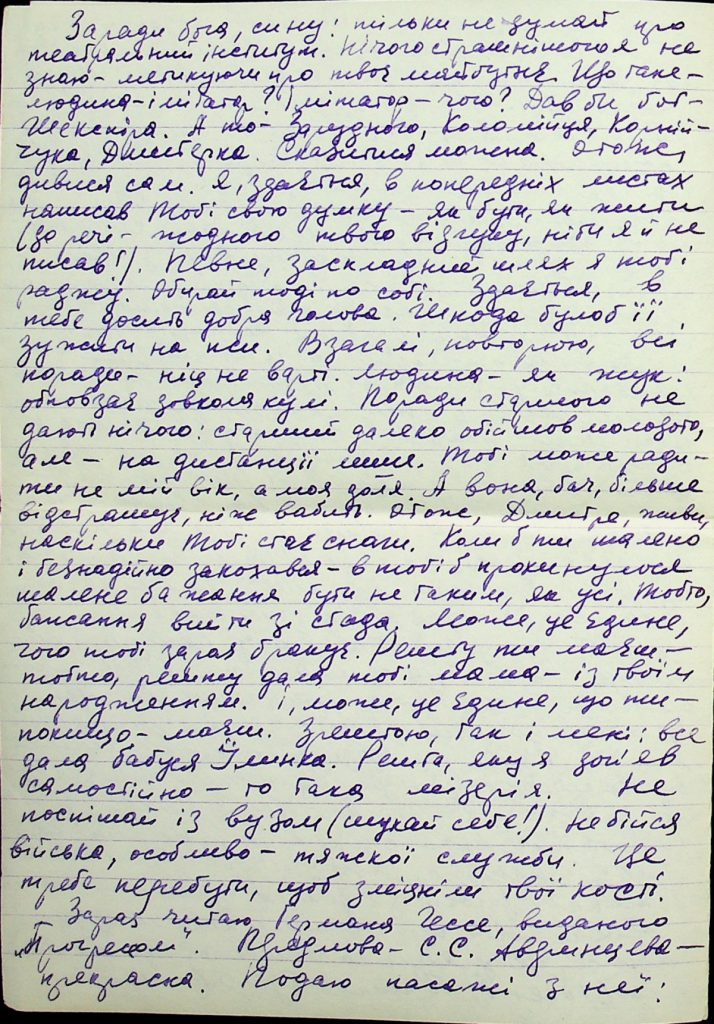 Заради бога, сину: тільки не думай про
театральний інститут. Нічого страшнішого я не
знаю – метикуючи про твоє майбутнє. Що таке –
людина-імітатор? Імітатор – чого? Дав би бог –
Шекспіра. А то – Зарудного, Коломійця, Корній-
чука, Дмитерка. Сказитися можна. Отож,
дивися сам. Я, здається, в попередніх листах
написав Тобі свою думку – як бути, як жити
(до речі – жодного твого відгуку, ніби я й не
писав!). Певне, заскладний шлях я тобі
раджу. Обирай тоді по собі. Здається, в
тебе досить добра голова. Шкода було б її
зужити на пси. Взагалі, повторюю, всі
поради – ніц не варті. Людина – як жук:
обповзає довкола кулі. Поради старшого не
дають нічого: старший далеко обійшов молодого,
але – на дистанції лише. Тобі може ради-
ти не мій вік, а моя доля. А вона, бач, більше
відстрашує, ніж вабить. Отож, Дмитре, живи,
наскільки Тобі стає снаги. Коли б ти шалено
і безнадійно закохався – в тобі б прокинулося
шалене бажання бути не таким, як усі. Тобто,
бажання вийти зі стада. Може, це єдине,
чого тобі зараз бракує. Решту ти маєш –
тобто, решту дала тобі мама – із твоїм
народженням. І, може, це єдине, що ти –
покищо – маєш. Зрештою, так і мені: все
дала бабуся Їлинка. Решта, яку я зогнев
самостійно – то така мізерія. Не
поспішай із вузом (шукай себе!). Не бійся
війська, особливо – тяжкої служби. Це
треба перебути, щоб зміцніли твої кості.
Зараз читаю Германа Гессе, виданого
„Прогресом". Передмова – С.С. Аверинцева –
прекрасна. Подаю пасажі з неї: